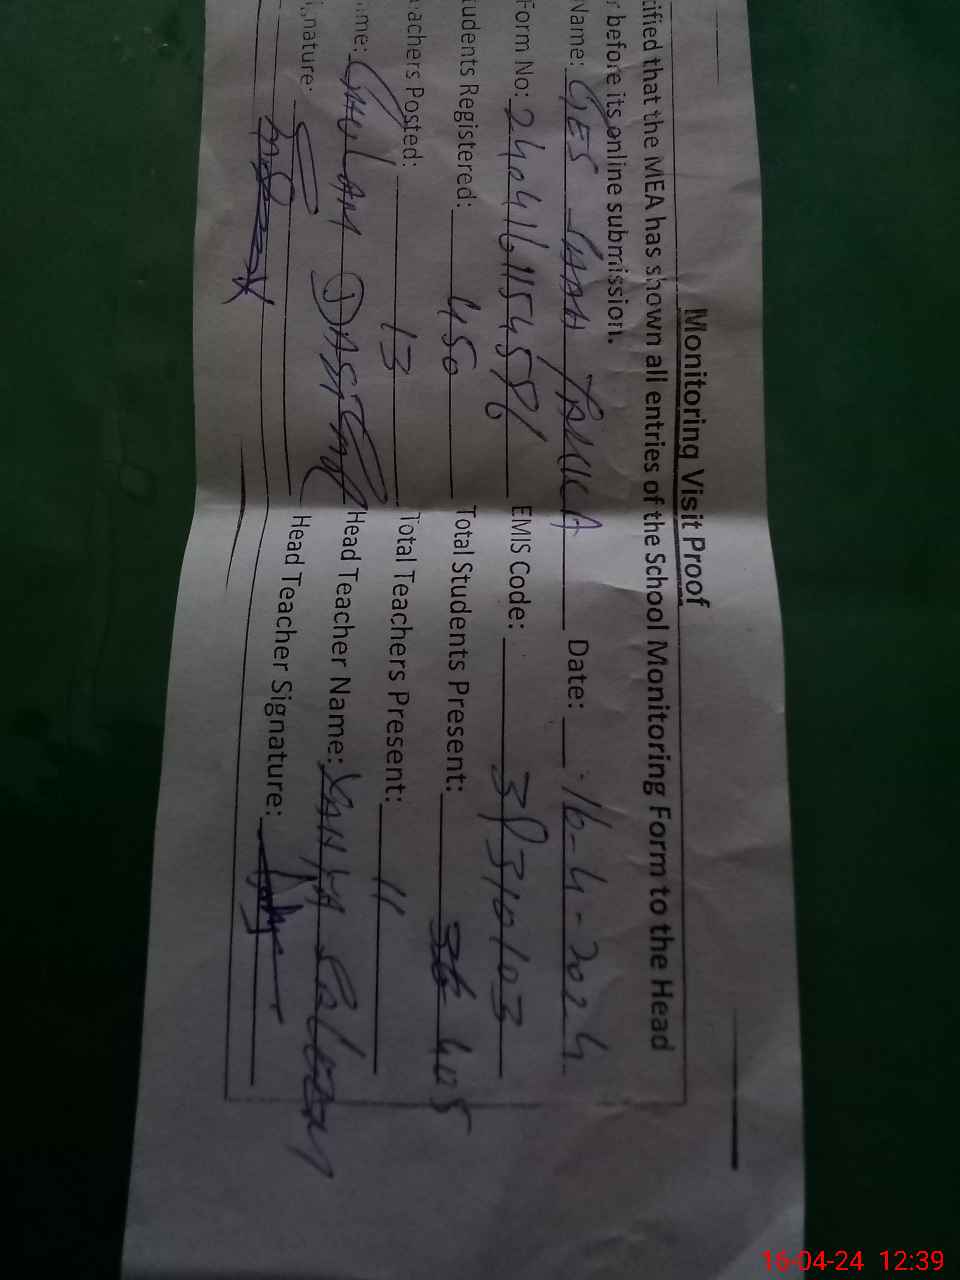 Monitoring Visit Proof
tified that the MEA has shown all entries of the School Monitoring Form to the Head
r before its online submission.
Name: GES SHAH Date: 16-4-2024
Form No: 240416115458 EMIS Code: 38310103
tudents Registered: 450 Total Students Present: 405
achers Posted: 13 Total Teachers Present: 11
me: GHULAM DASTGIR Head Teacher Name:
nature: Head Teacher Signature:
16-04-24 12:39